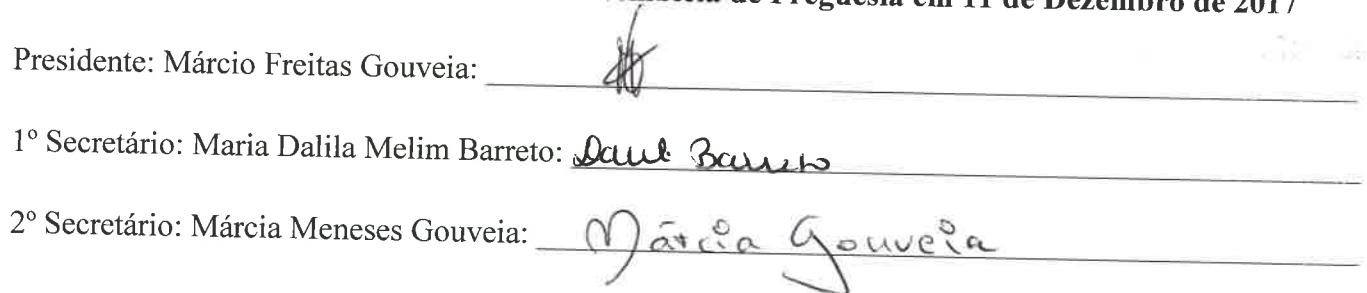 de Freguesia em 11 de Dezembro de 2017
Presidente: Márcio Freitas Gouveia:
1º Secretário: Maria Dalila Melim Barreto: Barreto
2º Secretário: Márcia Meneses Gouveia: Márcia Gouveia